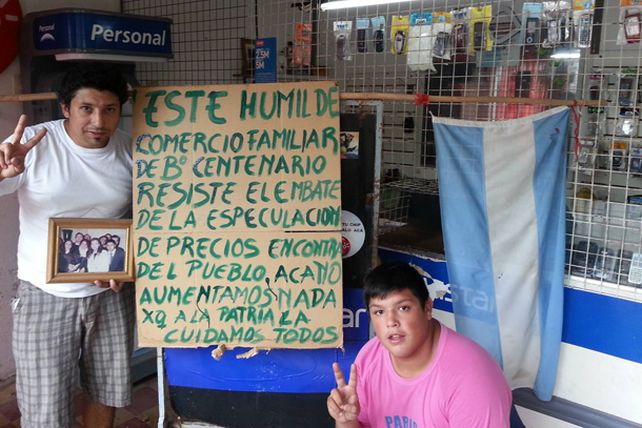 Personal
ESTE HUMILDE
COMERCIO FAMILIAR
DE Bº CENTENARIO
RESISTE EL EMBATE
DE LA ESPECULACION
DE PRECIOS ENCONTRA
DEL PUEBLO, ACA NO
AUMENTAMOS NADA
XQ A LA PATRIA LA
CUIDAMOS TODOS
TU CHIP
ACA